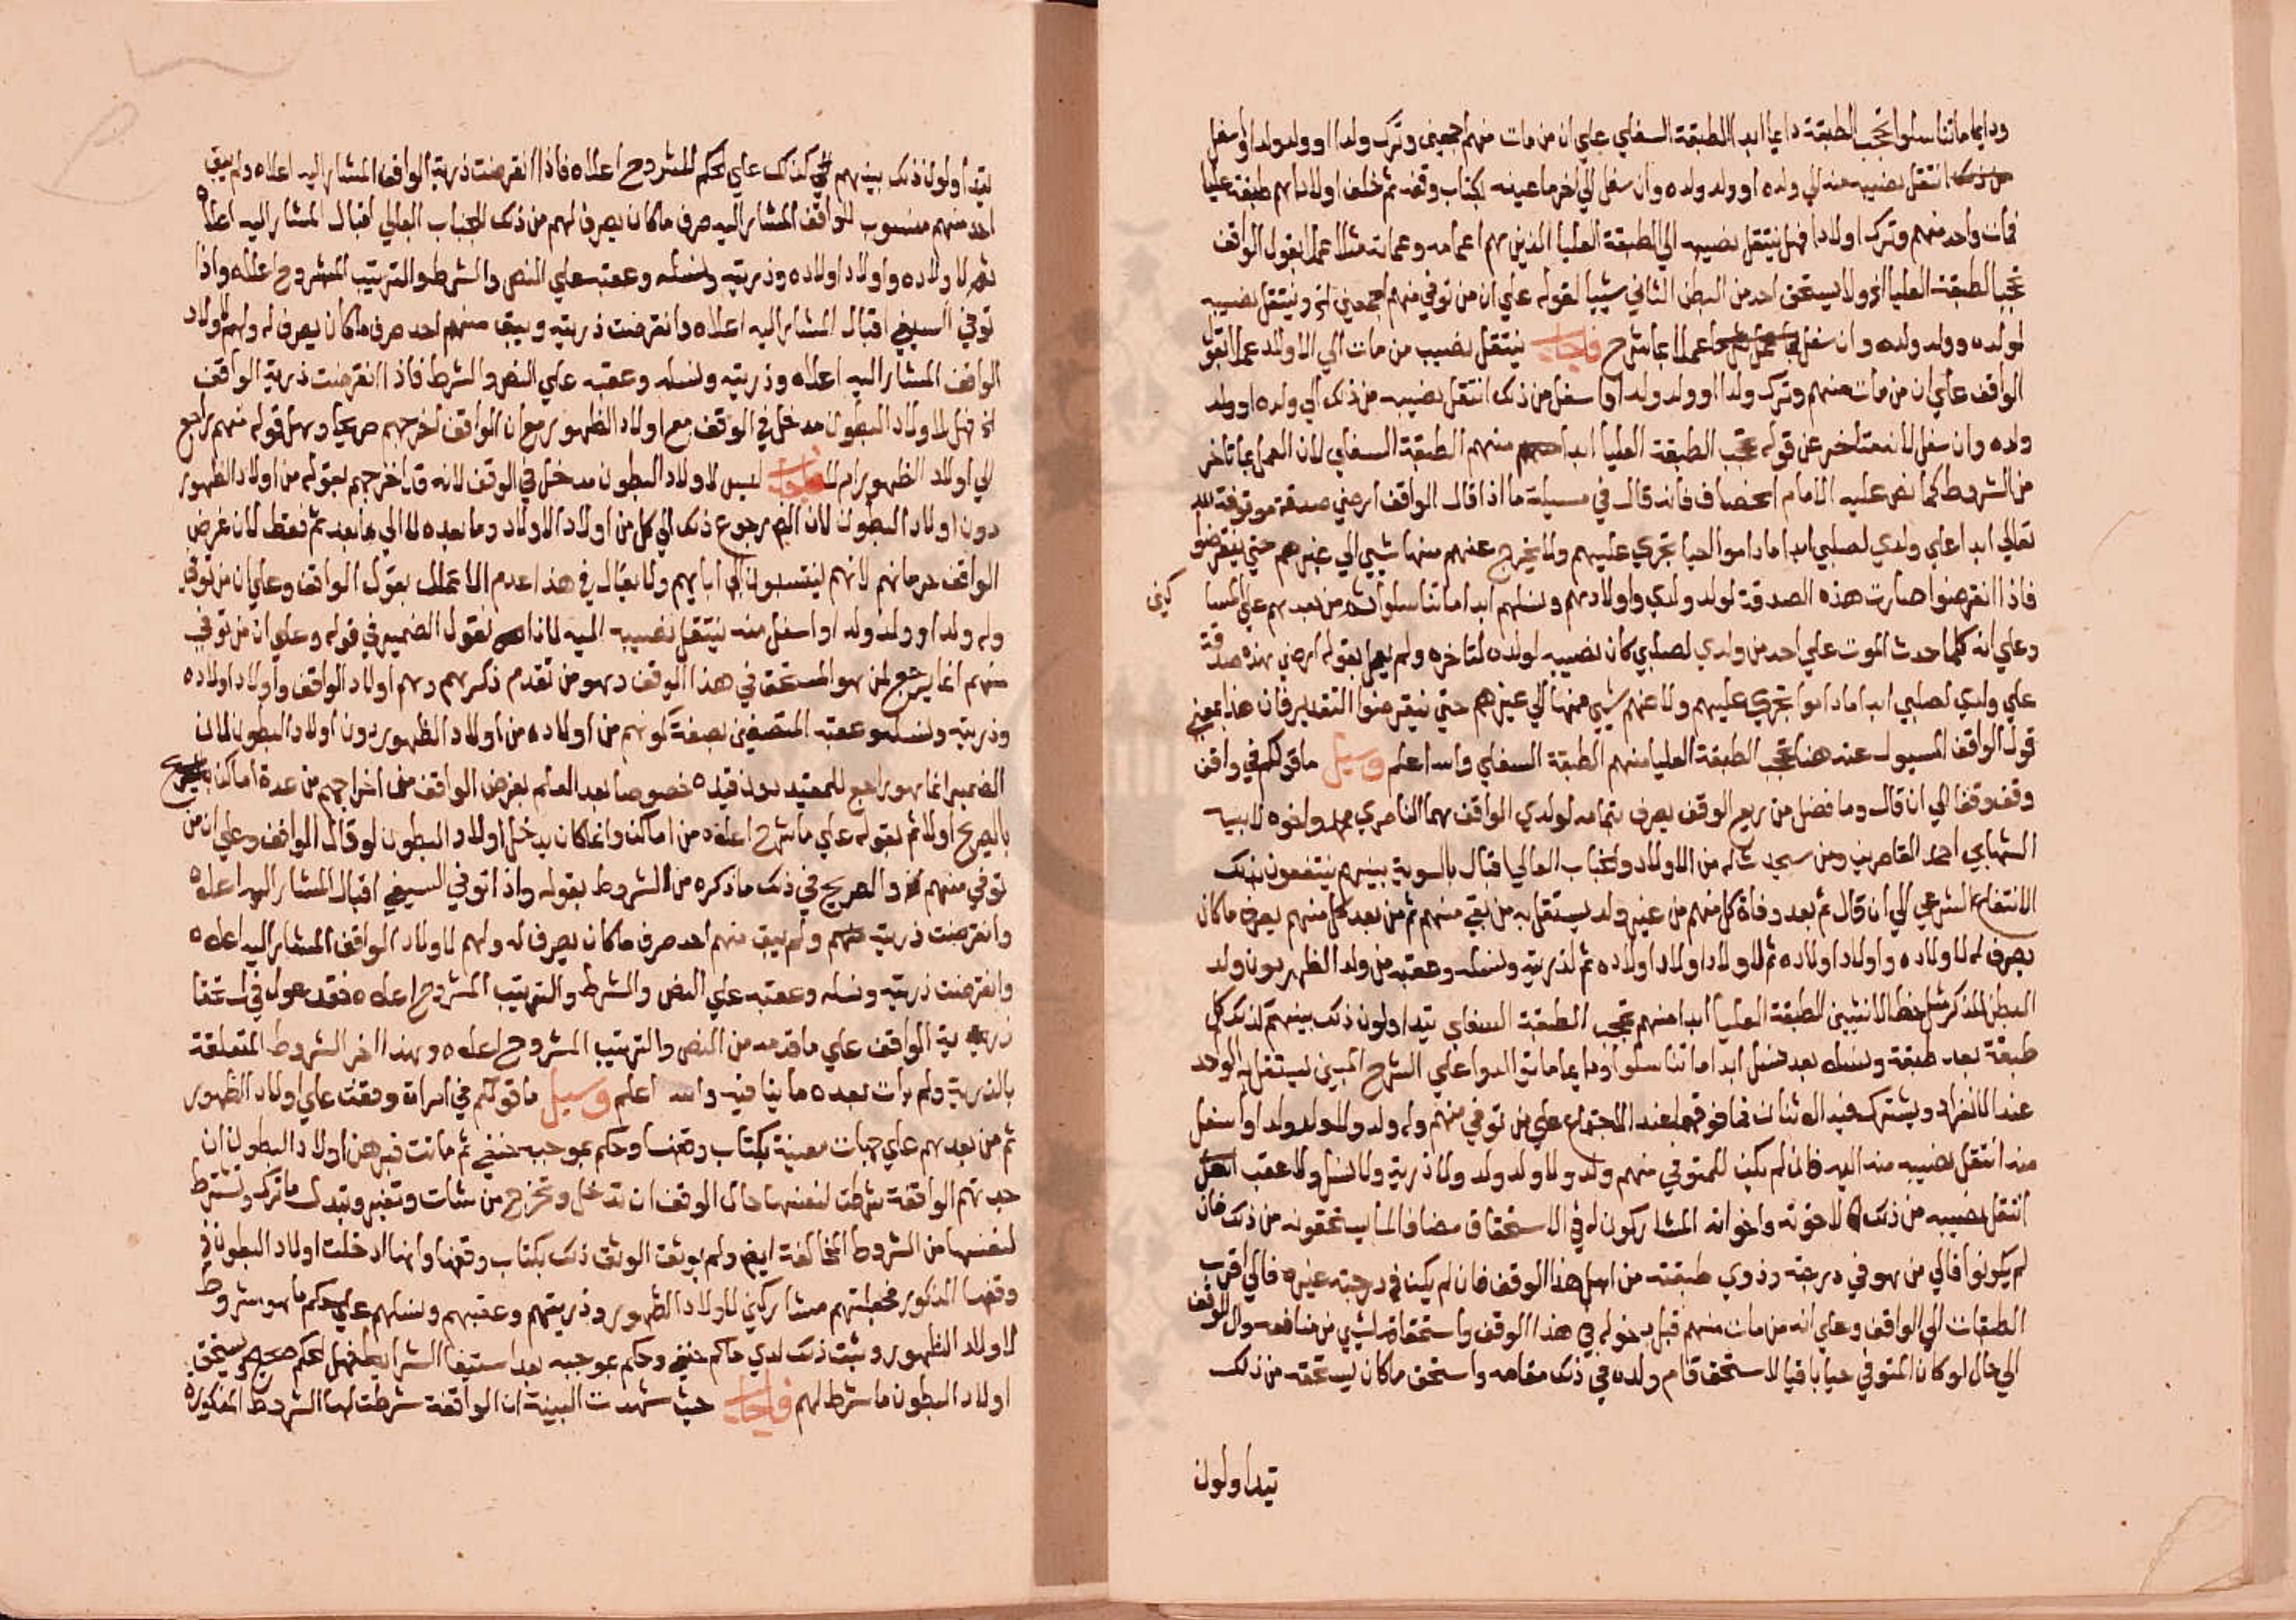 ودايما ما تناسلوا تحجب الطبقة دايما ابدا الطبقة السفلي علي ان من مات منهم اجمعين وترك ولدا او ولد ولد او اسفل
من ذلك انتقل نصيبه منه الي ولده او ولد ولده وان سفل الي اخر ما عينه بكتاب وقفه ثم خلف اولادا هم طبقة عليا
فمات واحد منهم وترك اولادا فهل ينتقل نصيبه الي الطبقة العليا الذين هم اعمامه وعماته مثلا عملا بقول الواقف
تحجب الطبقة العليا الخ ولا يستحق احد من البطن الثاني شييا لقوله علي ان من توفي منهم اجمعين الخ وينتقل نصيبه
لولده وولد ولده وان سفل عملا بما شرح فاجاب ينتقل نصيب من مات الي الاولاد عملا بقول
الواقف علي ان من مات منهم وترك ولدا او ولد ولد او اسفل من ذلك انتقل نصيبه من ذلك الي ولده او ولد
ولده وان سفل لانه متاخر عن قوله تحجب الطبقة العليا ابدا منهم الطبقة السفلي لان العمل بما تاخر
من الشروط كما نص عليه الامام الخصاف فانه قال في مسيلة ما اذا قال الواقف ارضي صدقة موقوفة لله
تعالي ابدا علي ولدي لصلبي ابدا ما داموا احيا تجري عليهم ولا يخرج عنهم منها شيي الي غيرهم حتي ينقرضوا
فاذا انقرضوا صارت هذه الصدقة لولد ولدي واولادهم ونسلهم ابدا ما تناسلوا ثم من بعدهم علي المسا
كين
وعلي انه كلما حدث الموت علي احد من ولدي لصلبي كان نصيبه لولده لتاخره ولم يعمل بقوله ارضي هذه صدقة
علي ولدي لصلبي ابدا ما داموا تجري عليهم ولا عنهم شيي منها الي غيرهم حتي ينقرضوا التقدير فان هذا بمعني
قول الواقف المسيول عنه هنا تحجب الطبقة العليا منهم الطبقة السفلي والله اعلم وسيل ما قولكم في واقف
وقف وقفا الي ان قال وما فضل من ريع الوقف يصرف بتمامه لولدي الواقف هما الناصري محمد واخوه لابيه
الشهابي احمد القاصرين ومن سيحدث له من الاولاد والجناب العالي اقبال بالسوية بينهم ينتفعون بذلك
الانتفاع الشرعي الي ان قال ثم بعد وفاة كل منهم من غير ولد يستقل به من بقي منهم ثم من بعد كل منهم يصرف ما كان
يصرف له لاولاده واولاد اولاده ثم لاولاد اولاد اولاده ثم لذريته ونسله وعقبه من ولد الظهر دون ولد
البطن للذكر مثل حظ الانثيين الطبقة العليا ابدا منهم تحجب الطبقة السفلي يتداولون ذلك بينهم كذلك كل
طبقة بعد طبقة ونسله بعد نسل ابدا ما تناسلوا ودايما ما توالدوا علي الشرح المبين يستقل به الواحد
عند الانفراد ويشترك فيه الاثنان فما فوقهما عند الاجتماع علي من توفي منهم وله ولد او ولد ولد او اسفل
منه انتقل نصيبه منه اليه فان لم يكن للمتوفي منهم ولد ولا ولد ولد ولا ذرية ولا نسل ولا عقب
انتقل نصيبه من ذلك لاخوته واخواته المشاركون له في الاستحقاق مضافا لما يستحقونه من ذلك فان
لم يكونوا فالي من هو في درجته وذوي طبقته من اهل هذا الوقف فان لم يكن في درجته غيره فالي اقرب
الطبقات الي الواقف وعلي انه من مات منهم قبل دخوله في هذا الوقف واستحقاقه لشيي من منافعه وال الوقف
الي حال لو كان المتوفي حيا باقيا لاستحق قام ولده في ذلك مقامه واستحق ما كان يستحقه من ذلك
يتداولون
يتداولون ذلك بينهم كذلك علي الحكم المشروح اعلاه فاذا انقرضت ذرية الواقف المشار اليه اعلاه ولم يبق
احد منهم منسوب للواقف المشار اليه صرف ما كان يصرف لهم من ذلك للجناب العالي اقبال المشار اليه اعلاه
ثم لاولاده واولاد اولاده وذريته ونسله وعقبه علي النص والشرط والترتيب المشروح اعلاه واذا
توفي السيفي اقبال المشار اليه اعلاه وانقرضت ذريته ويبق منهم احد صرف ما كان يصرف له ولهم لاولاد
الواقف المشار اليه اعلاه وذريته ونسله وعقبه علي النص والشرط فاذا انقرضت ذرية الواقف
الخ فهل لاولاد البطون مدخل في الوقف مع اولاد الظهور مع ان الواقف اخرجهم صريحا وهل قوله منهم راجع
الي اولاد الظهور ام لا فاجاب ليس لاولاد البطون مدخل في الوقف لانه قد اخرجهم بقوله من اولاد الظهور
دون اولاد البطون لان الضمير رجوع ذلك الي كل من اولاد الاولاد وما بعده لا الي ما بعد ثم فقط لان غرض
الواقف حرمانهم لانهم ينتسبون الي ابايهم ولا يقال في هذا عدم الاعمال بقول الواقف وعلي ان من توفي
وله ولد او ولد ولد او اسفل منه ينتقل نصيبه اليه لانا نقول الضمير في قوله وعلي ان من توفي
منهم انما يرجع لمن هو المستحق في هذا الوقف وهو من تقدم ذكرهم وهم اولاد الواقف واولاد اولاده
وذريته ونسله وعقبه المتصفين بصفة كونهم من اولاده من اولاد الظهور دون اولاد البطون لان
الضمير انما هو راجع للمقيد بدون قيده خصوصا بعد العلم بغرض الواقف من اخراجهم من عدة اماكن
بالصريح اولا ثم بقوله علي ما شرح اعلاه من اماكن وانما كان يدخل اولاد البطون لو قال الواقف وعلي ان من
توفي منهم الخ والصريح في ذلك ما ذكره من الشروط بقوله واذا توفي السيفي اقبال المشار اليه اعلاه
وانقرضت ذريته ولم يبق منهم احد صرف ما كان يصرف له ولهم لاولاد الواقف المشار اليه اعلاه
وانقرضت ذريته ونسله وعقبه علي النص والشرط والترتيب المشروح اعلاه فقد عول في استحقا
ذرية الواقف علي ما قدمه من النص والترتيب المشروح اعلاه وبهذا اخر الشروط المتعلقة
بالذرية ولم يات بعده ما ينافيه والله اعلم وسيل ما قولكم في امراة وقفت علي اولاد الظهور
ثم من بعدهم علي جهات معينة بكتاب وقفها وحكم بموجبه حنفي ثم ماتت فبرهن اولاد البطون ان
جدتهم الواقفة شرطت لنفسها حال الوقف ان تدخل وتخرج من شات وتغير وتبدل ما ترك وتشترط
لنفسها من الشروط المخالفة ايضا ولم يوثق الموثق ذلك بكتاب وقفها وانها ادخلت اولاد البطون في
وقفها المذكور فجعلتهم مشاركين لاولاد الظهور وذريتهم وعقبهم ونسلهم علي حكم ما هو مشروط
لاولاد الظهور وثبت ذلك لدي حاكم حنفي وحكم بموجبه بعد استيفا الشرايط فهل الحكم صحيح ويستحق
اولاد البطون ما شرط لهم فاجاب حيث شهدت البينة ان الواقفة شرطت لها الشروط المذكورة